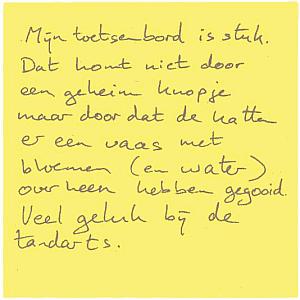 Mijn toetsenbord is stuk.
Dat komt niet door
een geheim knopje
maar doordat de katten
er een vaas met
bloemen (en water)
overheen hebben gegooid.
Veel geluk bij de
tandarts.